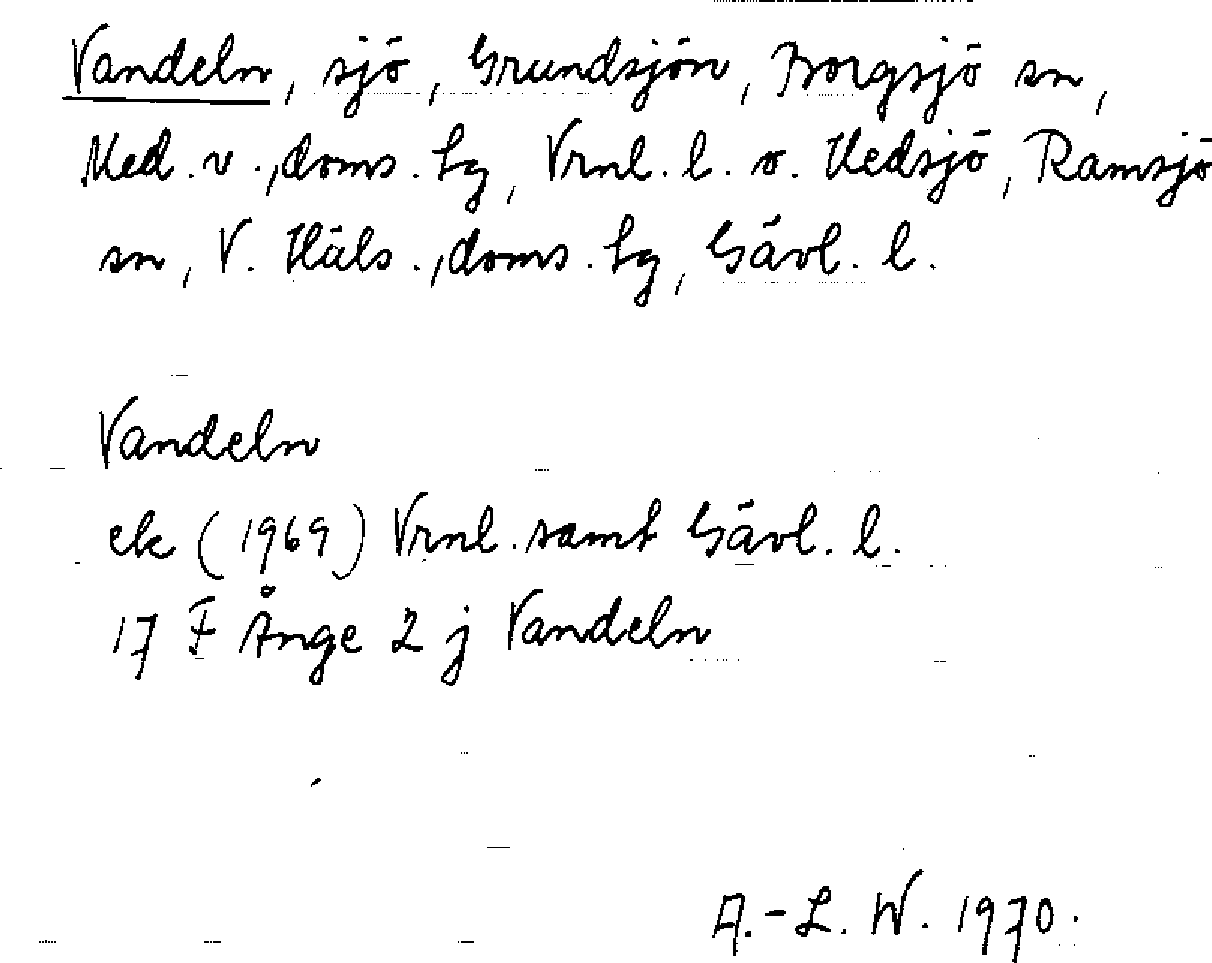 Vandeln, sjö, Grundsjön, Borgsjö sn,
Med. v., doms. tg, Vrnl. l. o. Hedsjö, Ramsjö
sn, V. Häls., doms. tg, Gävl. l.
Vandeln
ek (1969) Vrnl. samt Gävl. l.
17 F Ånge 2 j Vandeln
A.-L. W. 1970.